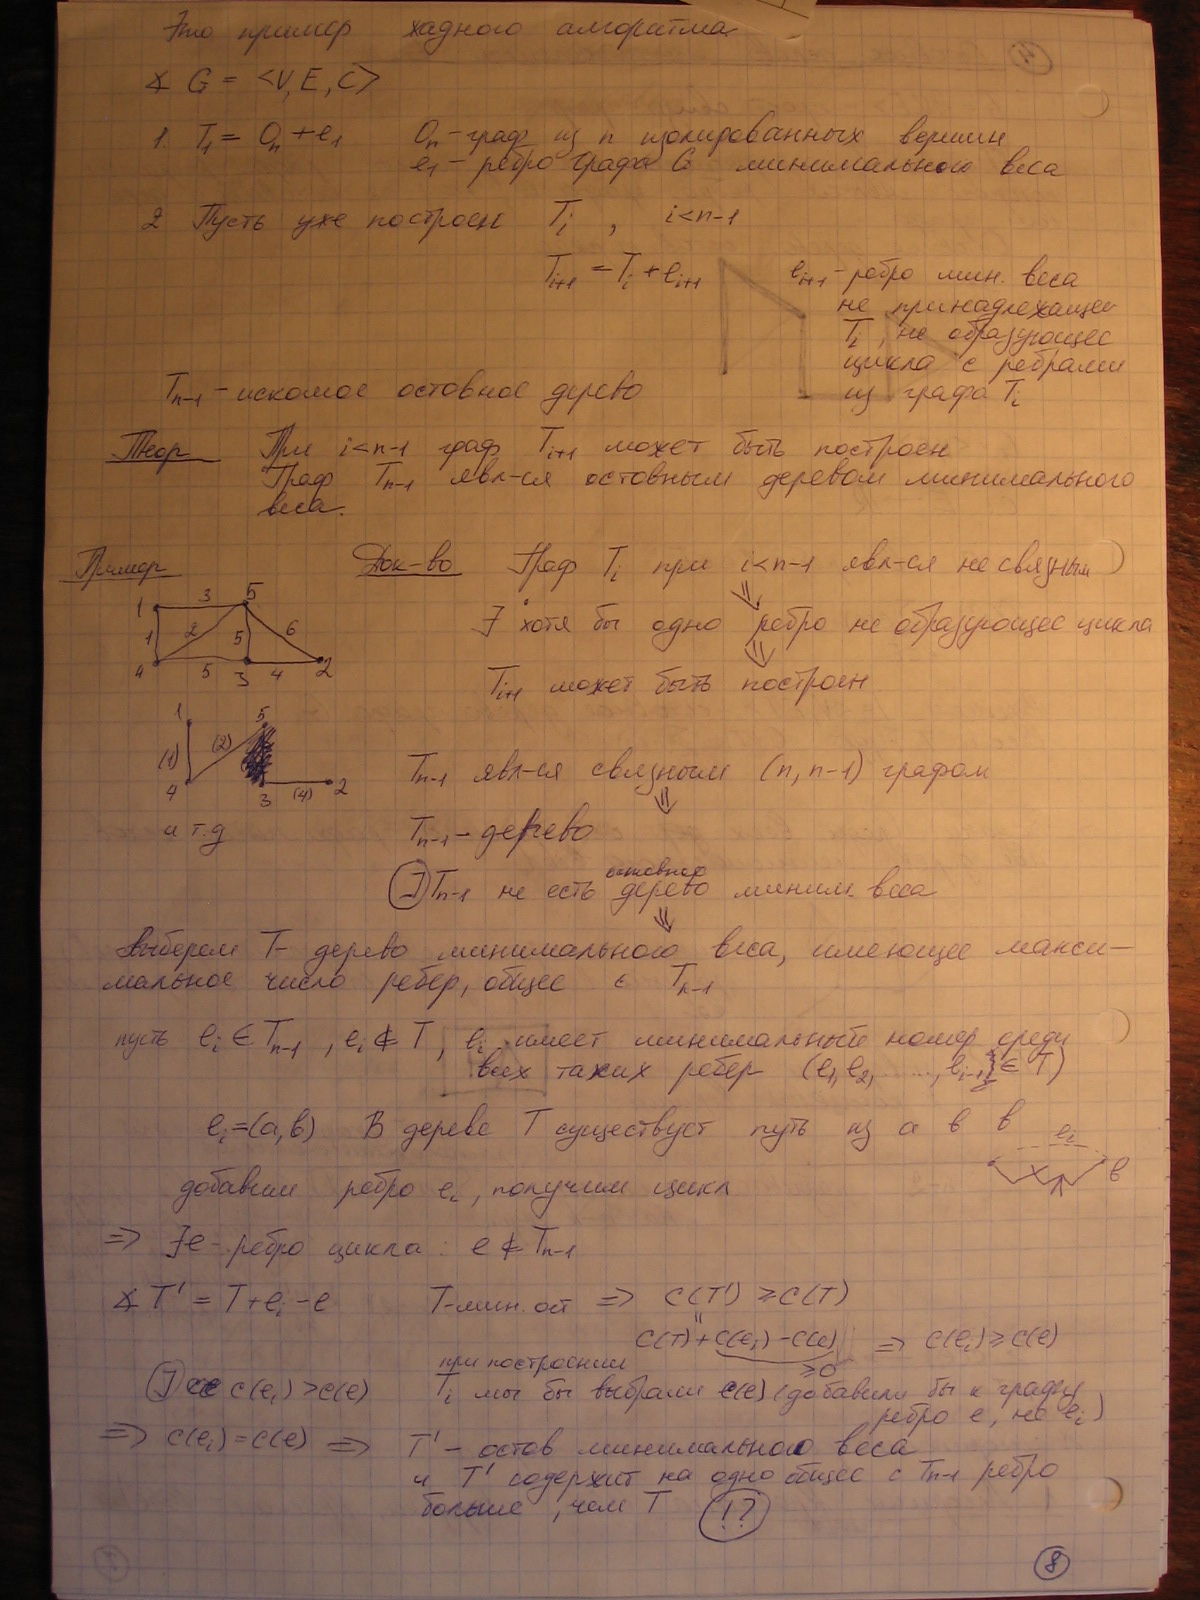 Это пример жадного алгоритма
∡ G = <V, E, C>
1 T₁ = Oₙ + e₁ Oₙ - граф из n изолированных вершин
e₁ - ребро графа G минимального веса
2 Пусть уже построен Tᵢ , i<n-1
Tᵢ₊₁ = Tᵢ + eᵢ₊₁ eᵢ₊₁ - ребро мин. веса
не принадлежащее
Tᵢ, не образующее
цикла с ребрами
из графа Tᵢ
Tₙ₋₁ - искомое остовное дерево
Теор При i<n-1 граф Tᵢ₊₁ может быть построен
Граф Tₙ₋₁ явл-ся остовным деревом минимального
веса.
Пример Док-во Граф Tᵢ при i<n-1 явл-ся не связным
⇓
∃ хотя бы одно ребро не образующее цикла
⇓
Tᵢ₊₁ может быть построен
1 3 5
1 2 5 6
4 5 3 4 2
1 5
(1) (2)
4 3 (4) 2
и т.д
Tₙ₋₁ явл-ся связным (n, n-1) графом
⇓
Tₙ₋₁ - дерево
остовное
∃ Tₙ₋₁ не есть дерево миним. веса
⇓
Выберем T - дерево минимального веса, имеющее макси-
мальное число ребер, общее с Tₙ₋₁
пусть eᵢ ∈ Tₙ₋₁ , eᵢ ∉ T, eᵢ имеет минимальный номер среди
всех таких ребер (e₁, e₂, ...., eᵢ₋₁} ∈ T)
eᵢ=(a,b) В дереве T существует путь из a в b
eᵢ
b
добавим ребро eᵢ, получим цикл
⇒ ∃e - ребро цикла : e ∉ Tₙ₋₁
∡ T' = T + eᵢ - e T-мин. ост ⇒ C(T') ≥ C(T)
"
C(T) + C(eᵢ) - C(e) ⇒ C(eᵢ) ≥ C(e)
≥0
при построении
∃ c(eᵢ) > c(e) Tᵢ мы бы выбрали c(e) (добавили бы к графу
ребро e, не eᵢ)
⇒ c(eᵢ) = c(e) ⇒ T' - остов минимального веса
и T' содержит на одно общее с Tₙ₋₁ ребро
больше, чем T !?
8